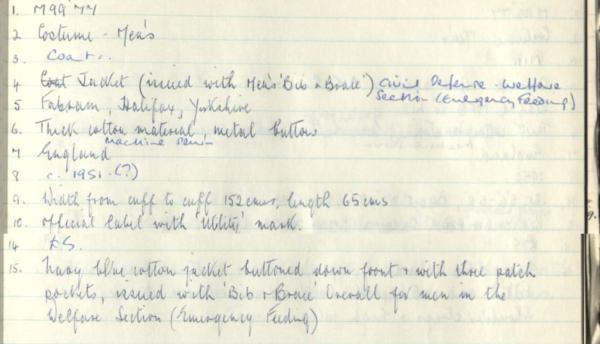 1. M99'77
2 Costume - Men's
3. Coat..
4 Coat Jacket (issued with Men's 'Bib & Brace') Civil Defence - Welfare
Section (Emergency Feeding)
5 Fabram, Halifax, Yorkshire
6. Thick cotton material, metal buttons
machine sewn
7 England
8 c. 1951. (?)
9. Width from cuff to cuff 152cms, length 65cms
10. Official label with 'Utility' mark.
14 RS.
15. Navy blue cotton jacket buttoned down front & with three patch
pockets, issued with 'Bib & Brace' Overall for men in the
Welfare Section (Emergency Feeding)